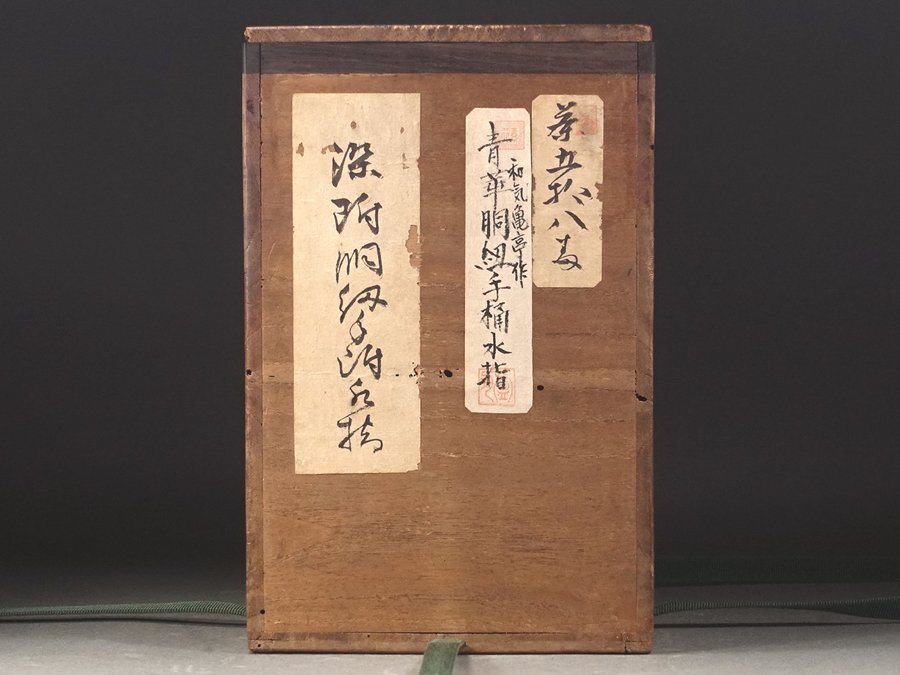 第五拾八号
和気亀亭作
青華胴紐手桶水指
染附胴紐手附水指